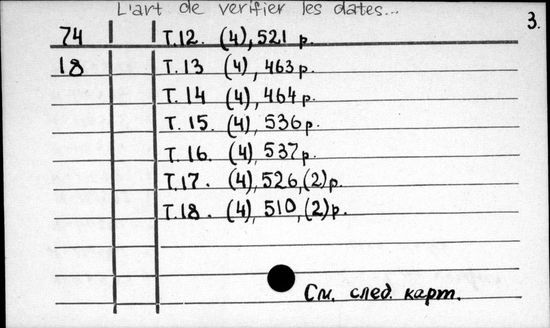 L'art de verifier les dates...
3.
74 T.12. (4), 521 p.
18 T.13 (4), 463 p.
T.14 (4), 464 p.
T.15. (4), 536 p.
T.16. (4), 537 p.
T.17. (4), 526, (2) p.
T.18. (4), 510, (2) p.
См. след. карт.